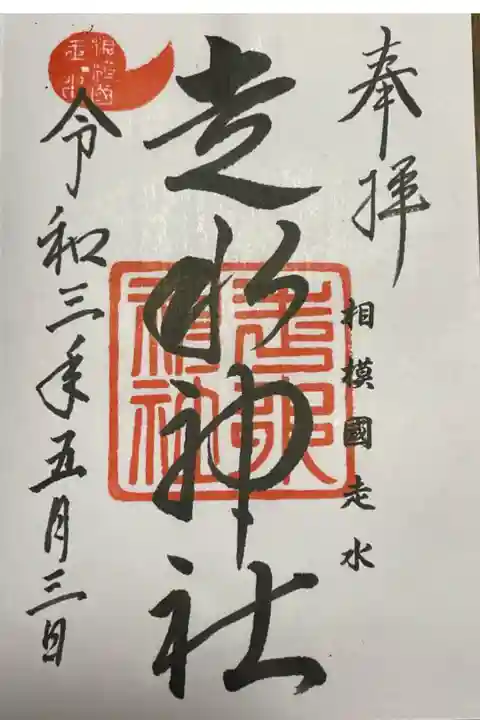 奉拝
相模國走水
走水神社
走水神社
令和三年五月三日